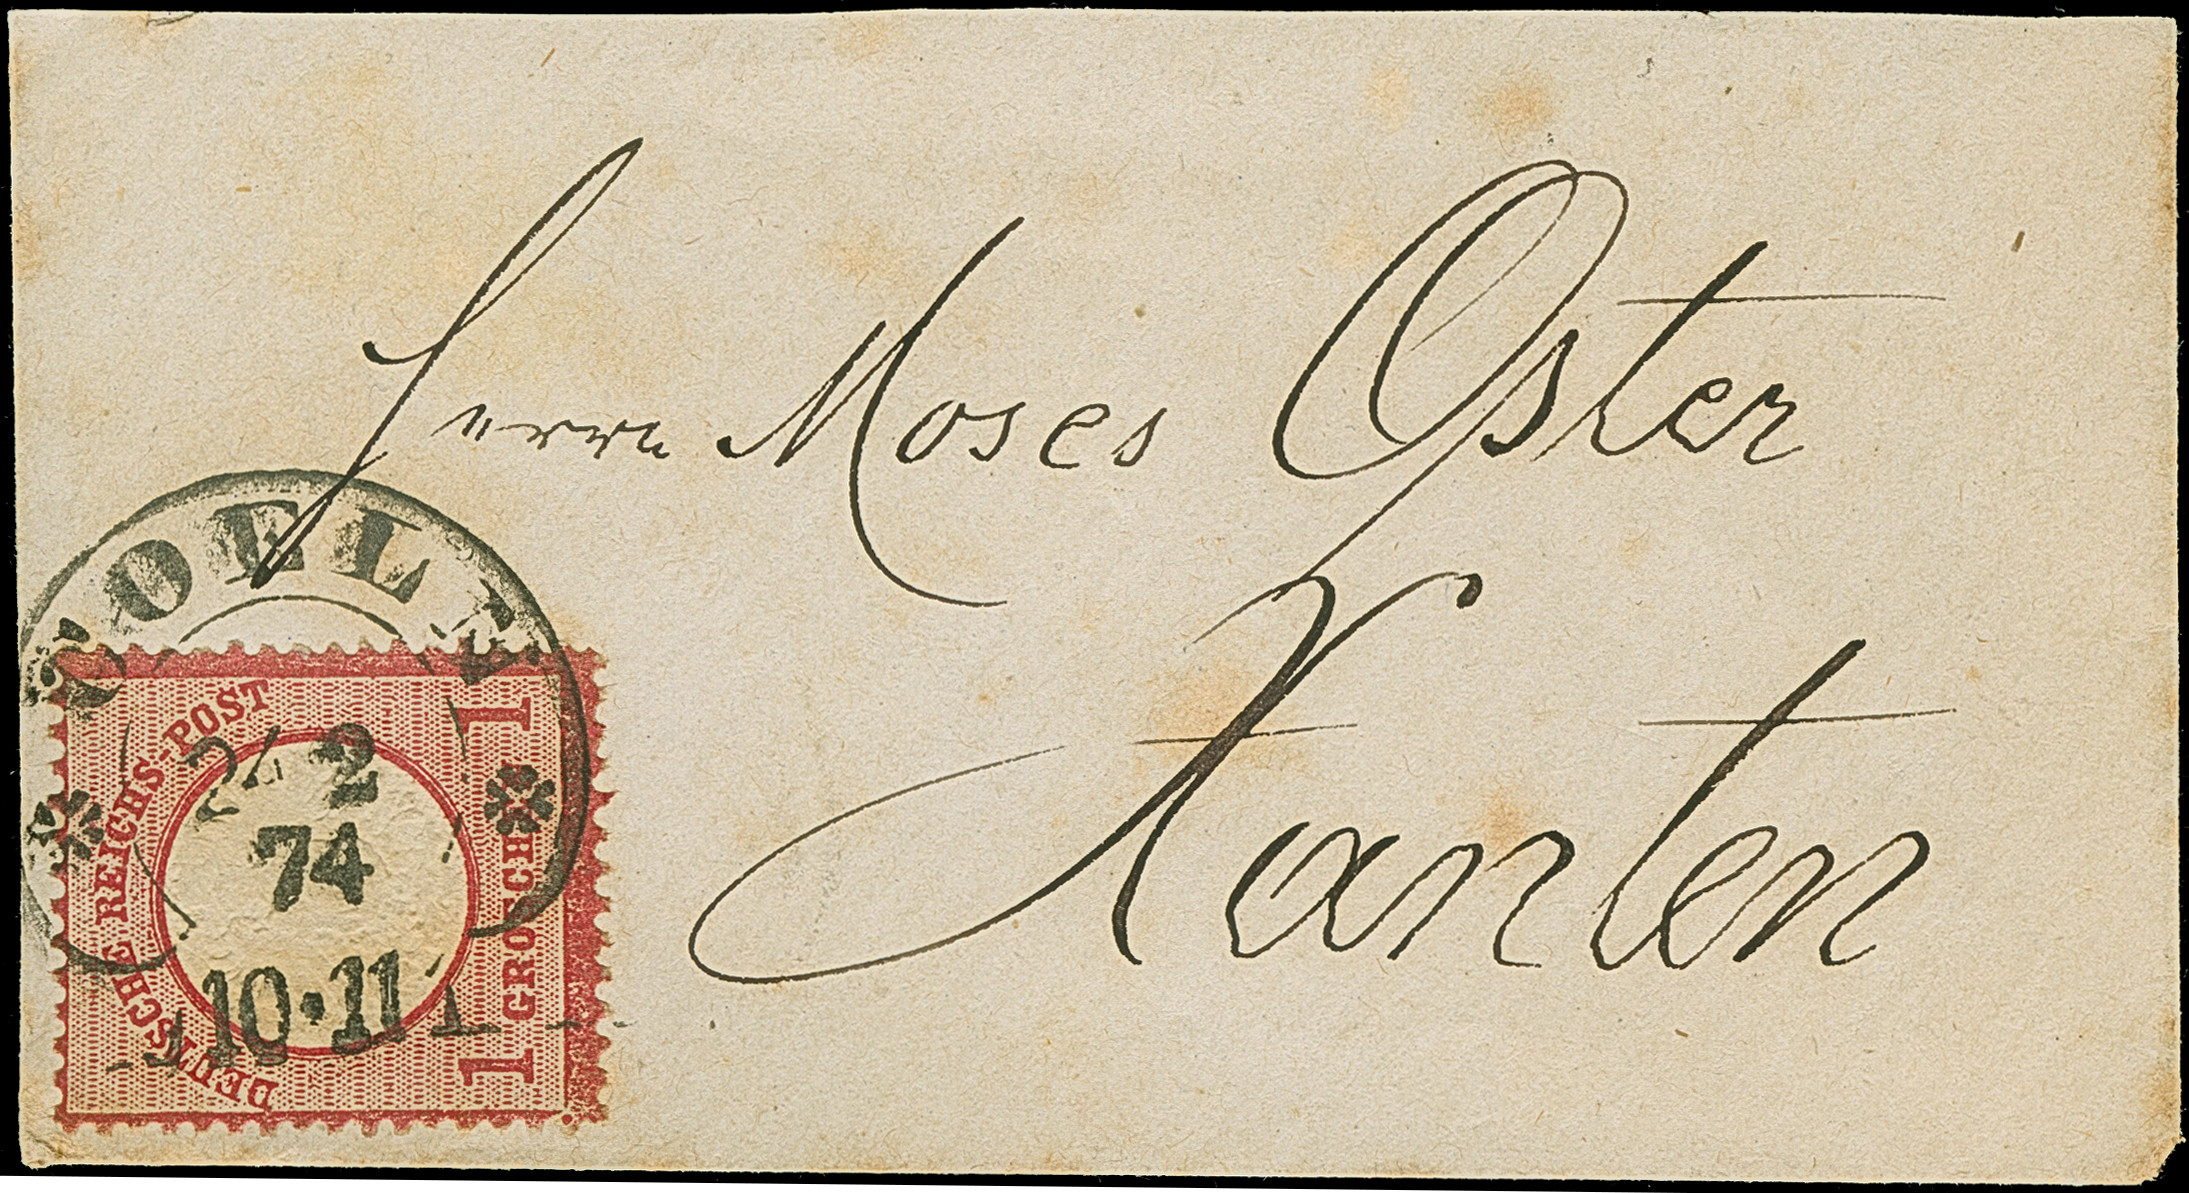 Herrn Moses Oster
Xanten
COELN
24 2
74
10·11
DEUTSCHE REICHS-POST
1 GROSCHEN 1